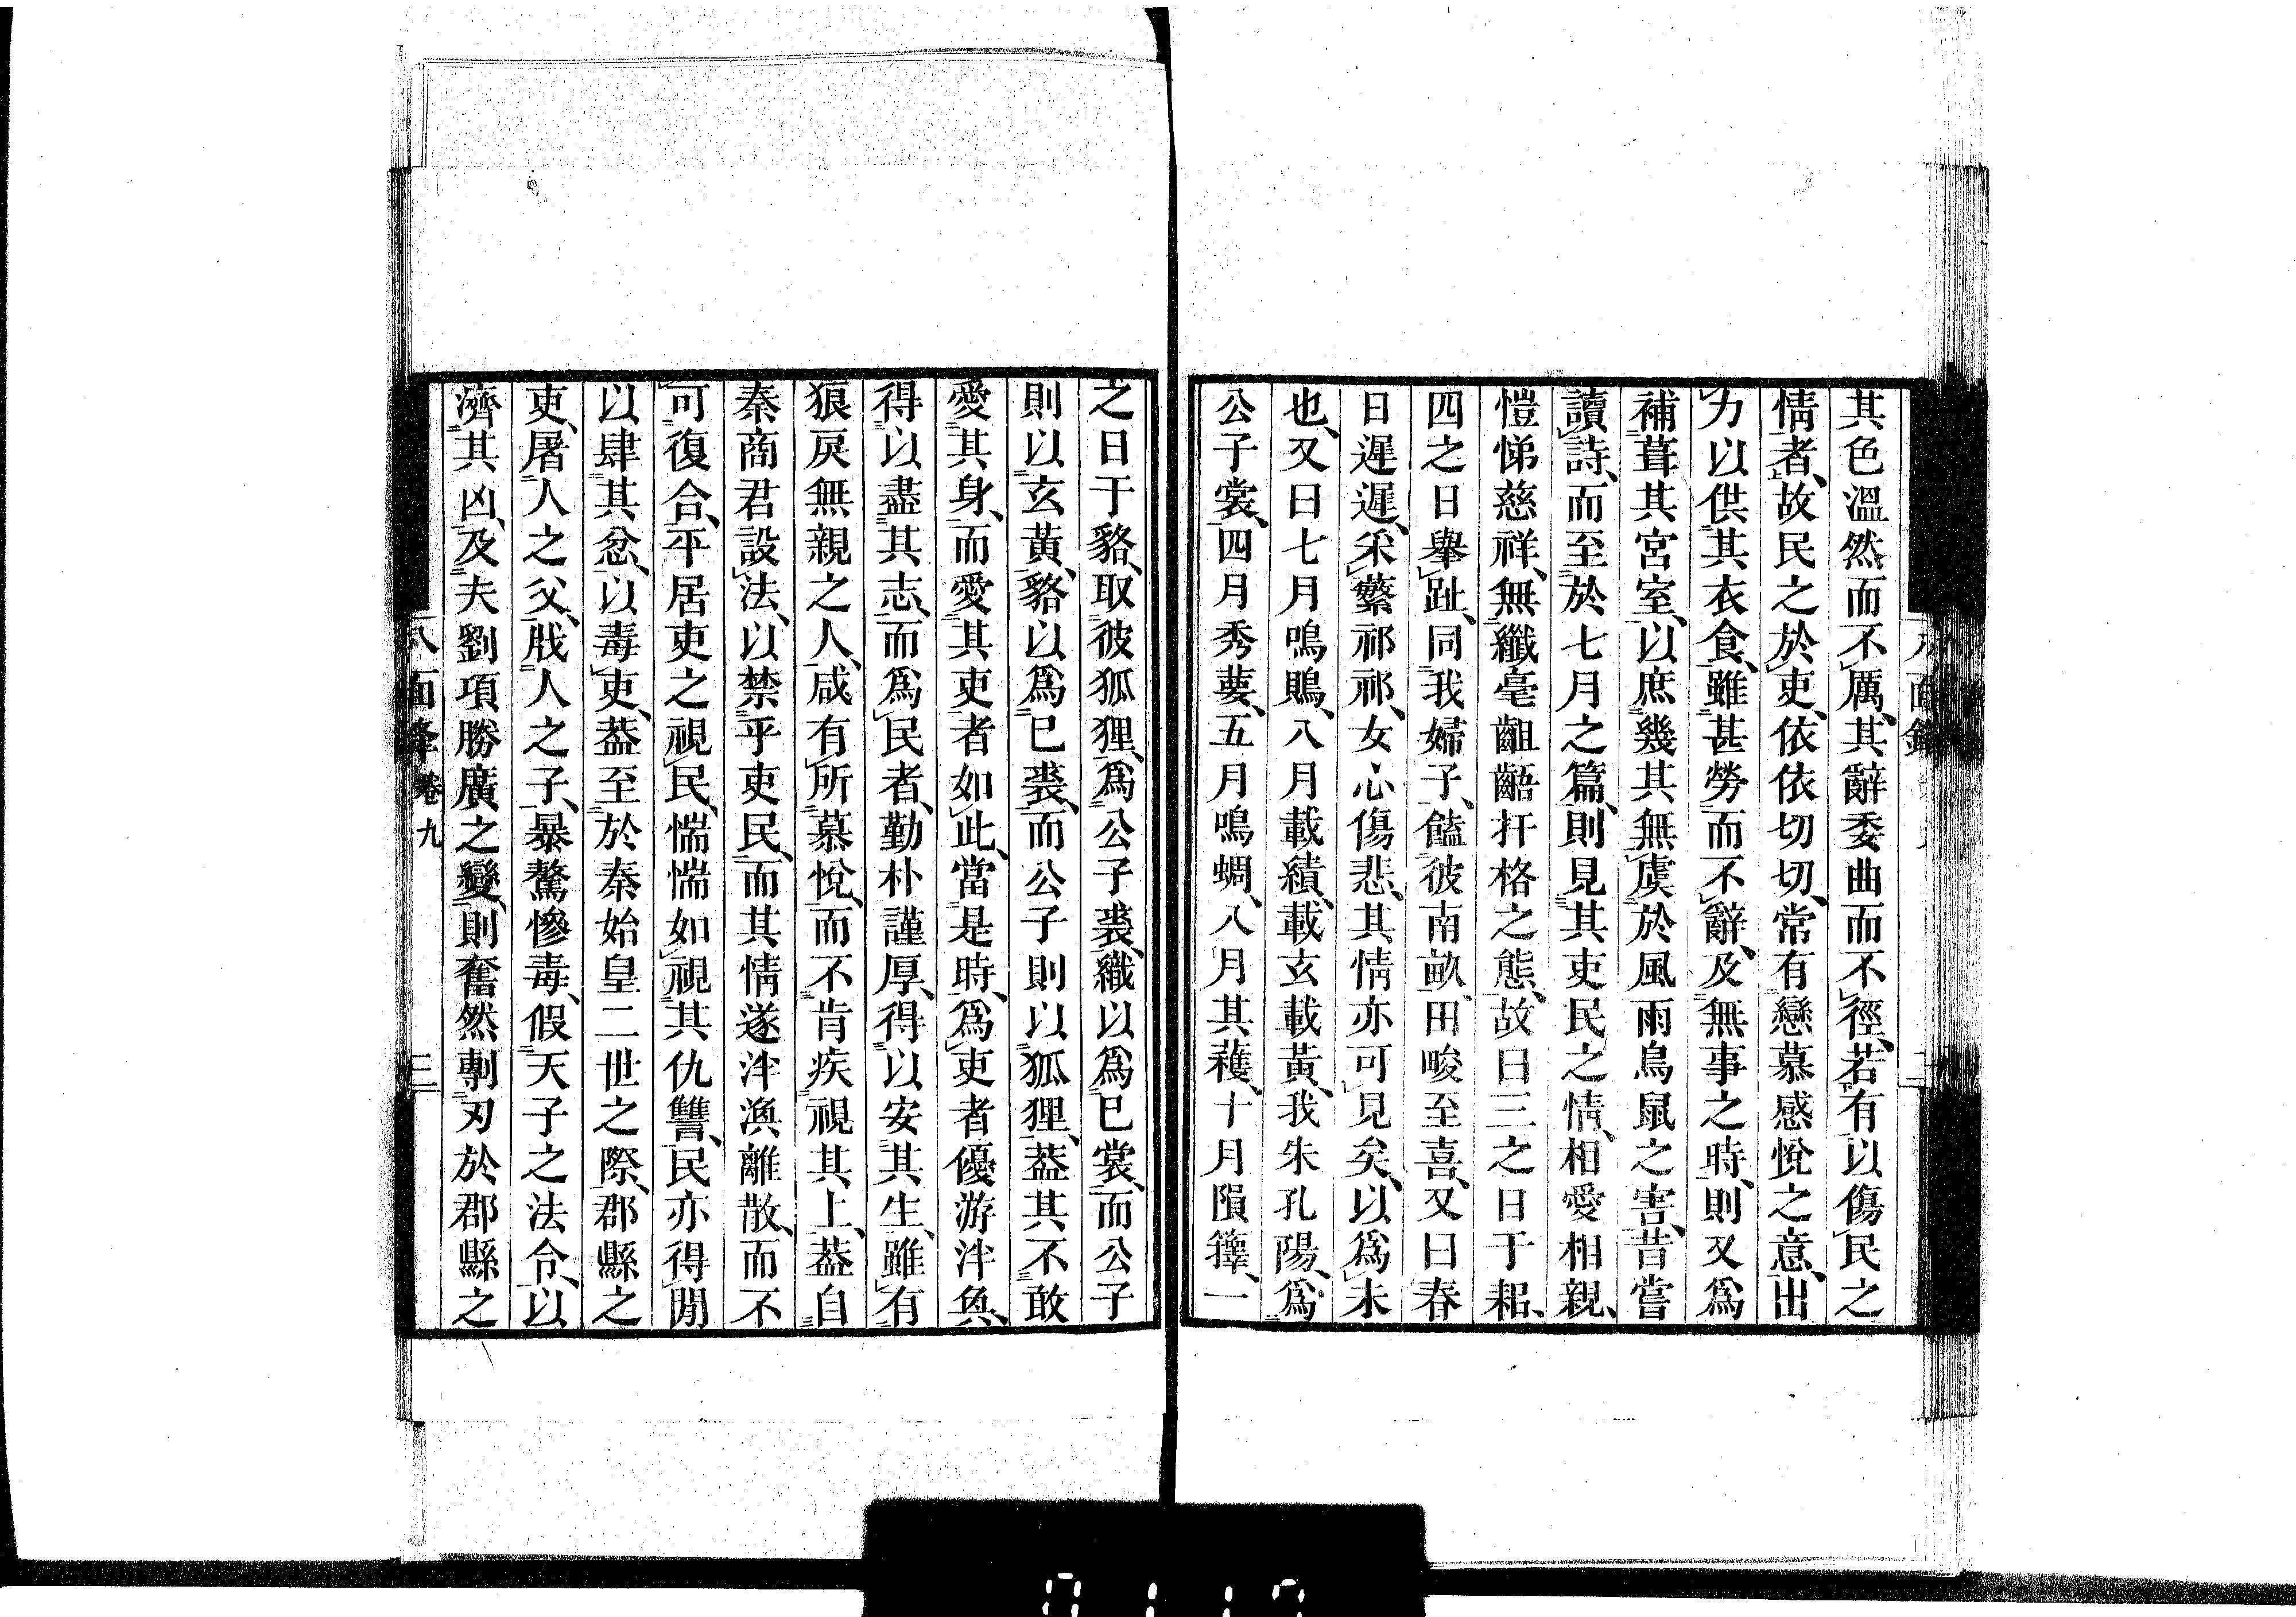 其色溫然而不厲、其辭委曲而不徑、若有以傷民之
情者、故民之於吏、依依切切、常有戀慕感悅之意、出
力以供其衣食、雖甚勞而不辭、及無事之時、則又爲
補葺其宮室、以庶幾其無虞於風雨鳥鼠之害、昔嘗
讀詩、而至於七月之篇、則見其吏民之情、相愛相親、
愷悌慈祥、無纖毫齟齬扞格之態、故曰三之日于耜、
四之日舉趾、同我婦子、饁彼南畝、田畯至喜、又曰春
日遲遲、采蘩祁祁、女心傷悲、其情亦可見矣、以爲未
也、又曰七月鳴鵙、八月載績、載玄載黃、我朱孔陽、爲
公子裳、四月秀葽、五月鳴蜩、八月其穫、十月隕蘀、一
之日于貉、取彼狐狸、爲公子裘、纖以爲已裳、而公子
則以玄黃、貉以爲已裘、而公子則以狐狸、葢其不敢
愛其身、而愛其吏者如此、當是時、爲吏者優游泮奐、
得以盡其志、而爲民者、勤朴謹厚、得以安其生、雖有
狼戾無親之人、咸有所慕悅、而不肯疾視其上、葢自
秦商君設法、以禁乎吏民、而其情遂泮渙離散、而不
可復合、平居吏之視民、惴惴如視其仇讐、民亦得閒
以肆其忿、以毒吏、葢至於秦始皇二世之際、郡縣之
吏、屠人之父、戕人之子、暴驁慘毒、假天子之法令、以
濟其凶、及夫劉項勝廣之變、則奮然剸刃於郡縣之
八面鋒 卷九 三